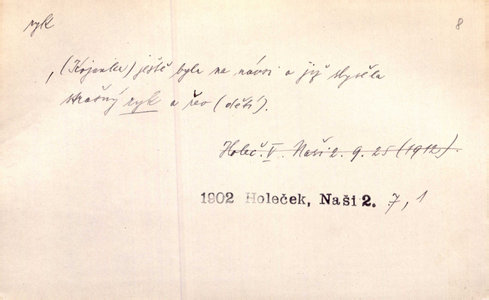 ryk
8
(Kojenka) ještě byla na návsi a již slyšela
strašný ryk a řev (dětí).
Holeč. V. Naši 2. 9. 25 (1912).
1902 Holeček, Naši 2. 7, 1